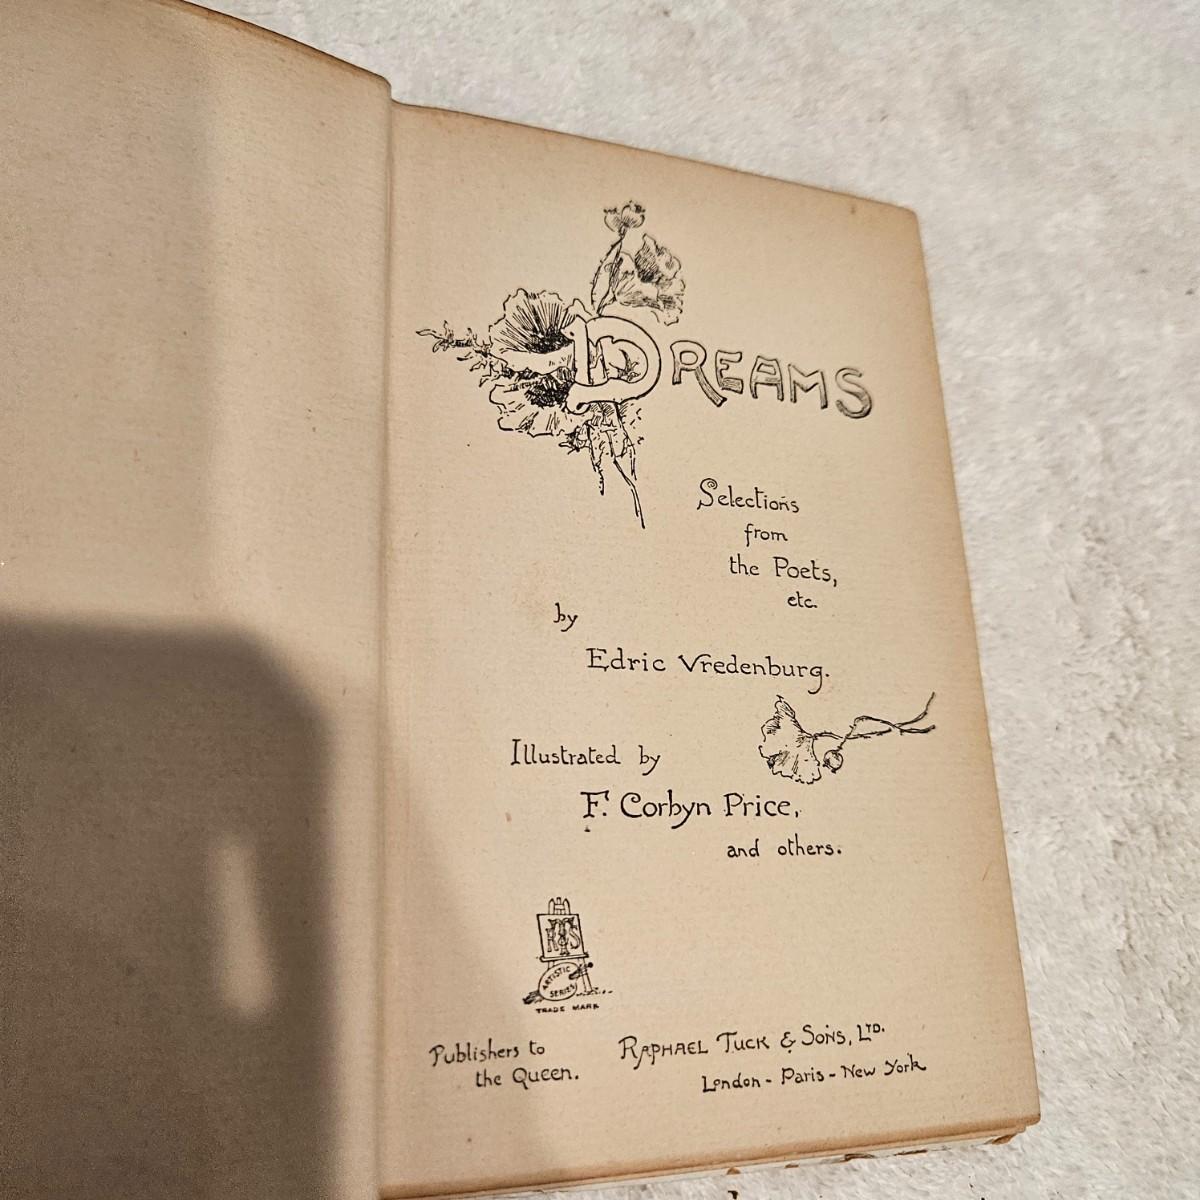 DREAMS
Selections
from
the Poets,
etc.
by
Edric Vredenburg.
Illustrated by
F. Corbyn Price,
and others.
RTS
ARTISTIC
SERIES
TRADE MARK
Publishers to
the Queen.
RAPHAEL TUCK & SONS, LTD.
London - Paris - New York